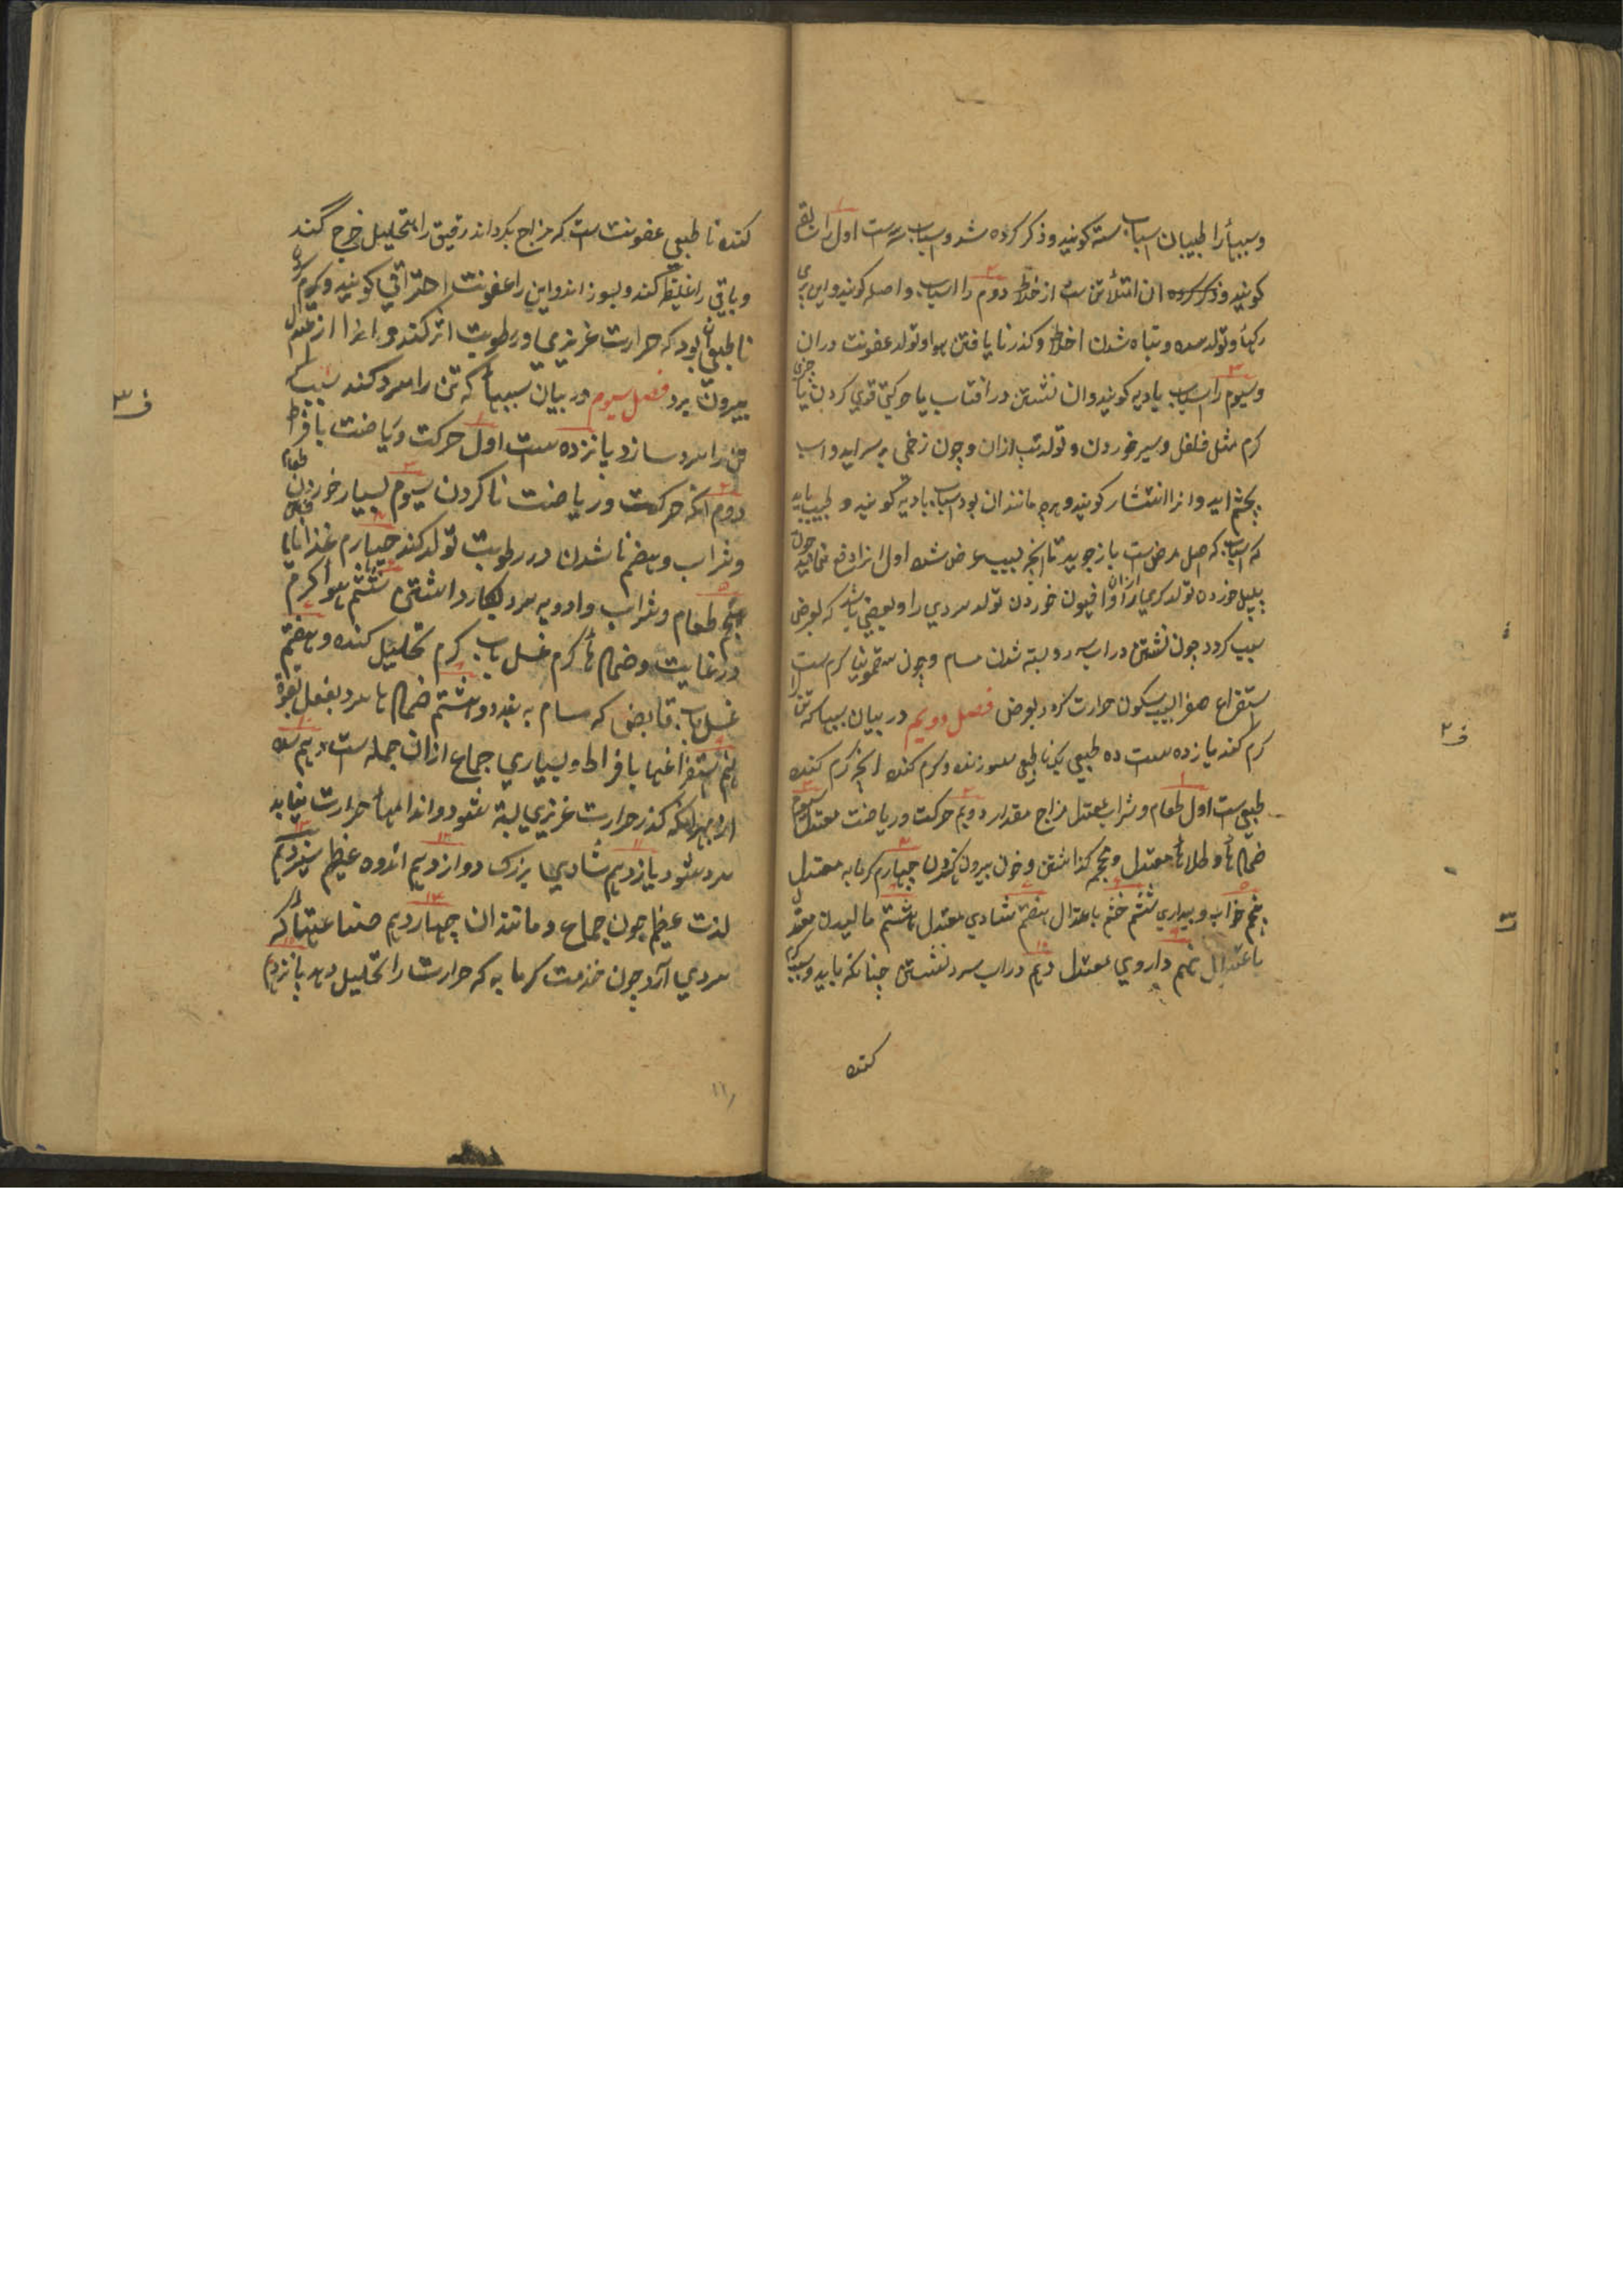 و سببها را طبیبان اسباب سته کویند و ذکر کرده شد و اسباب سه است اول را سابق
کویند و ذکر کرده ان امتلأ تن است از خلط دوم را اسباب واصله کویند و این پری
رکها و تولد سده و تباه شدن اخلاط و کذر نا یافتن هوا و تولد عفونت در ان
و سیوم را اسباب بادیه کویند و ان نشستن در افتاب یا حرکتی قوی کردن یا چیزی
کرم مثل فلفل و سیر خوردن و تولد تب ازان و چون زخمی بر سر اید و اب
بچشم اید و انرا انتشار کویند و هرچه مانند ان بود اسباب بادیه کویند و طبیب باید
که اسباب که اصل مرض است باز جوید تا انچه بسبب عرض شده اول انرا دفع نماید چون
پلپل خورده تولد کرمی ازان و افیون خوردن تولد سردی را و بعضی باشد که بعرض
سبب کردد چون نشستن در اب سرد و بسته شدن مسام و چون سقمونیا کرم ست
استفراغ صفرا بسبب سکون حرارت کردد بعرض فصل دویم در بیان سببها که تن را
کرم کند یازده ست ده طبیعی یکی نا طبیعی سوزنده و کرم کننده انچه کرم کننده
طبیعی ست اول طعام و شراب معتدل مزاج مقدار دویم حرکت و ریاضت معتدل سیوم
ضمادها و طلاها معتدل و محجمه کذاشتن و خون بیرون نکردن چهارم کرمابه معتدل
پنجم خواب و بیداری ششم خشم باعتدال هفتم شادی معتدل هشتم مالیدن معتدل
باعتدال نهم داروی معتدل دهم در اب سرد نشستن چنانکه باید و سبب کرم
کننده
کننده نا طبیعی عفونت است که مزاج بکرداند رقیق را بتحلیل خرج کند
و باقی را غلیظ کند و بسوزاند و این را عفونت احتراقی کویند و کرمی
نا طبیعی ان بود که حرارت غریزی در رطوبت اثر کند و انرا از معتدل
بیرون برد فصل سیوم در بیان سببها که تن را سرد کند سبب که
تن را سرد سازد پانزده ست اول حرکت و ریاضت بافراط
دوم انکه حرکت و ریاضت نا کردن سیوم بسیار خوردن طعام
و شراب و هضم نا شدن در رطوبت تولد کند چهارم غذا نایافتن
پنجم طعام و شراب و ادویه سرد بکار داشتن ششم هوا کرم
در غایت و ضمادها کرم غسل باب کرم تحلیل کننده و هفتم
غسل باب قابض که مسام به بندد و هشتم ضمادها سرد بفعل بقوة
نهم استفراغها بافراط و بسیاری جماع ازان جمله ست دهم سده
ارد بهرانکه کذر حرارت غریزی بسته شود و اندامها حرارت نیابد
سرد شود یازدهم شادیها بزرک دوازدهم اندوه عظیم سیزدهم
لذت عظیم چون جماع و مانند ان چهاردهم صناعتها که
سردی آرد چون خدمت کرمابه که حرارت را تحلیل دهد پانزدهم
ف ۲
ف ۳
۱۱